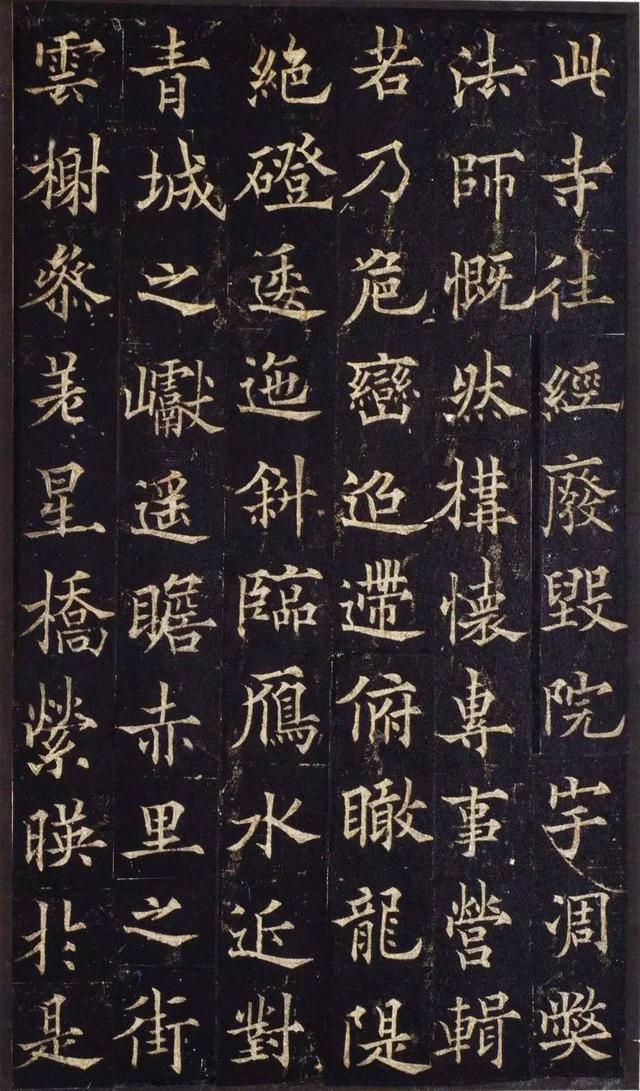 此寺往經廢毀院宇凋獘
法師慨然構懷專事營輯
若乃危巒迢遰俯瞰龍隄
絕磴逶迤斜臨鴈水近對
青城之巘遥瞻赤里之街
雲榭叅差星橋縈暎於是